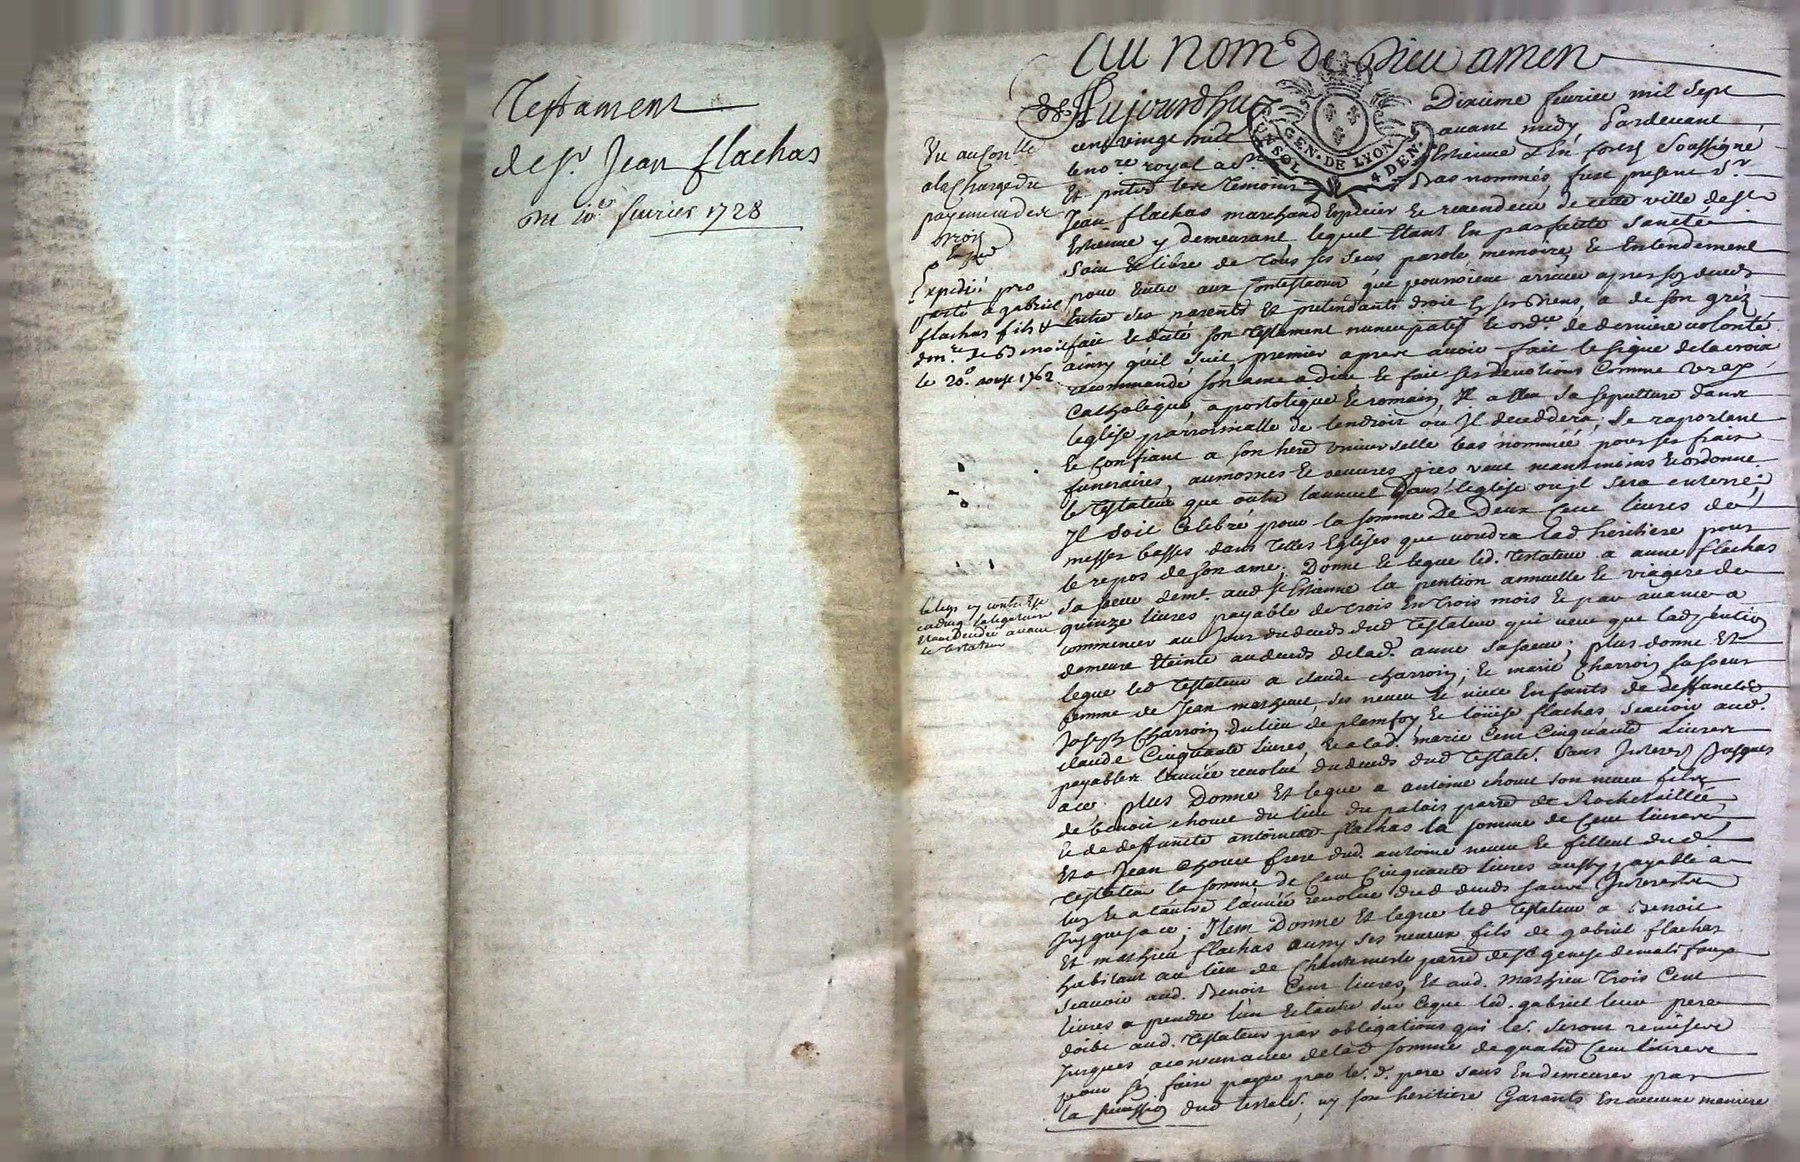 Testament
de Sr. Jean flachas
du 10e. fevrier 1728
Au nom de Dieu amen
Aujourdhuy Dixieme fevrier mil sept
cent vingt huit avant midy Pardevant
le nore royal a St Estienne En forest Soussigné
Et presents les temoins Bas nommés fust present Sr
Jean flachas marchand Epicier et revendeur de cette ville de St
Estienne y demeurant, lequel Etant En parfaitte Santé
Sain Et libre de tous ses sens parole, memoire, Et Entendement
pour Eviter aux Contestaons qué pourroient arriver apres son deceds
Entre ses parents Et pretendants droit En ses Biens, a de son gréz
fait Et dicté son testament nuncupatif Et ordce. de derniere volonté
ainsy quil suit, premier apres avoir fait le signe de la croix
recommandé son ame a dieu Et fait ses devotions Comme vray
Catholique, apostolique Et romain, Il a Elu sa sepulture dans
leglise parroissialle de lendroit ou Il deceddera, Se raportant
Et Confiant a son here Universelle bas nommée pour ses frais
funeraires, aumosnes Et oeuvres pies veut neantmoins Et ordonne
le testateur que outre lannuel dans l'Eglise ou jl sera enterré
Il soit Celebré pour la somme De Deux Cent livres de
messes basses dans telles Eglises que voudra lad heritiere pour
le repos de son ame; Donne Et legue led. testateur a anne flachas
sa soeur demt. aud St Etienne la pention annuelle Et viagere de
quinze livres payable de trois En trois mois Et par avance a
commencer au Jour du deceds dud testateur qui veut que lad pention
demeure Eteinte au deceds de lad. anne sa soeur; plus donne Et
legue led testateur a claude charroin, Et marie Charroin sa soeur
femme de Jean ses neveu Et niece Enfants de deffuncts
Joseph Charroin du lieu de planfoy Et loüise flachas scavoir aud.
claude Cinquante livres, Et a lad. marie Cent Cinquante livres
payables l'année revolue du deceds dud testatr. sans Interest Jusques
a ce. plus Donne Et legue a antoine chovet son neveu fils
de benoit chovet du lieu du palais parre de Rochetaillée
Et de deffuncte antoinette flachas la somme de Cent livres,
Et a Jean Chovet frere dud. antoine neveu Et filleul dud.
testateur la somme de Cent Cinquante livres aussy payable a
luy Et a lautre l'année revolue dud deceds sans Interests
Jusques a ce; Item Donne Et legue led testateur a Benoit
Et mathieu flachas aussy ses neveux fils de gabriel flachas
habitant au lieu de Chantemerle parre de St genest de malifaux
scavoir aud. Benoit Cent livres, Et aud. mathieu trois Cent
livres a prendre l'un Et lautre sur Ceque led. gabriel leur pere
doibt aud. testateur par obligations qui les. seront remises
Jusques a concurrance de lad somme de quatre Cent livres
pour s'En faire payer par le.d. pere sans En demeurer par
la succession dud testatr. ny son heritiere Garants En aucune maniere
Vu au Conlle
a la Charge du
payement des
droits
Expedié pro
parte a gabriel
flachas fils &
donre de Benoit
le 20e. 1762
le legs cy contre
du testateur